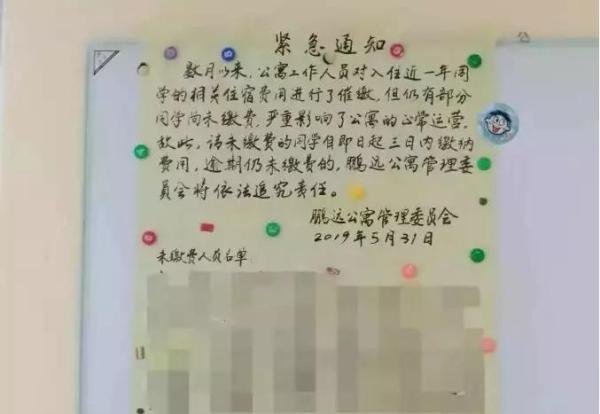 紧急通知
数月以来，公寓工作人员对入住近一年同
学的相关住宿费用进行了催缴，但仍有部分
同学尚未缴费，严重影响了公寓的正常运营。
故此，请未缴费的同学自即日起三日内缴纳
费用，逾期仍未缴费的，鹏远公寓管理委
员会将依法追究责任。
鹏远公寓管理委员会
2019年5月31日
未缴费人员名单